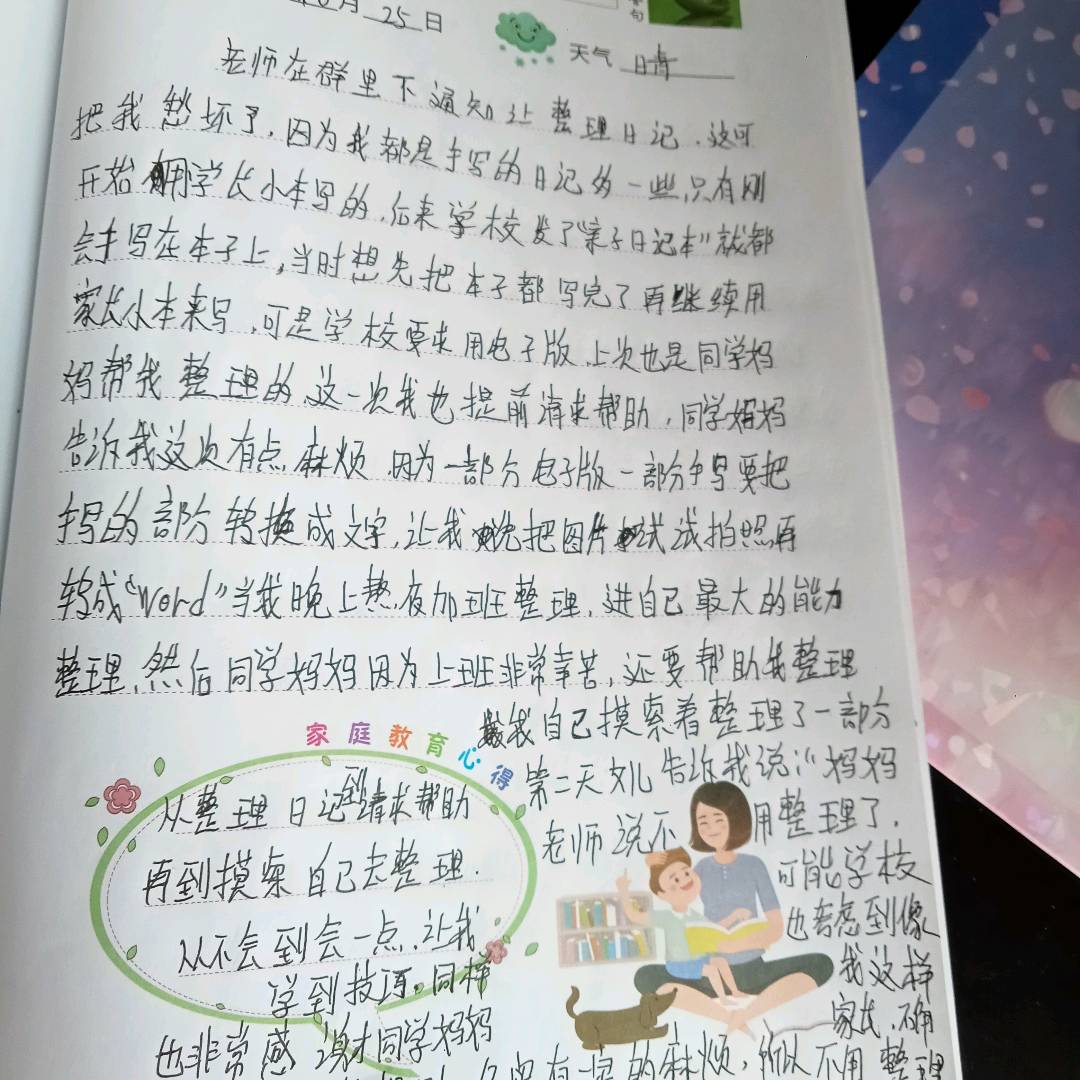 月 25 日
句
天气 晴
老师在群里下通知让整理日记.这可
把我愁坏了,因为我都是手写的日记多一些,只有刚
开始用学长小本写的,后来学校发了"亲子日记本"就都
会手写在本子上,当时想先把本子都写完了再继续用
家长小本来写,可是学校要求用电子版,上次也是同学妈
妈帮我整理的,这一次我也提前请求帮助,同学妈妈
告诉我这次有点麻烦,因为一部分电子版一部分手写要把
手写的部分转换成文字,让我先把图片试试拍照再
转成"word"当我晚上熬夜加班整理,进自己最大的能力
整理,然后同学妈妈因为上班非常辛苦,还要帮助我整理
我自己摸索着整理了一部分
第二天女儿告诉我说:"妈妈
老师说不用整理了.
可能学校
也考虑到像
我这样
家长,不用
家庭教育心得
从整理日记到请求帮助
再到摸索自己去整理.
从不会到会一点,让我
学到技巧。同样
也非常感谢才同学妈妈
有一定的麻烦,所以不用整理